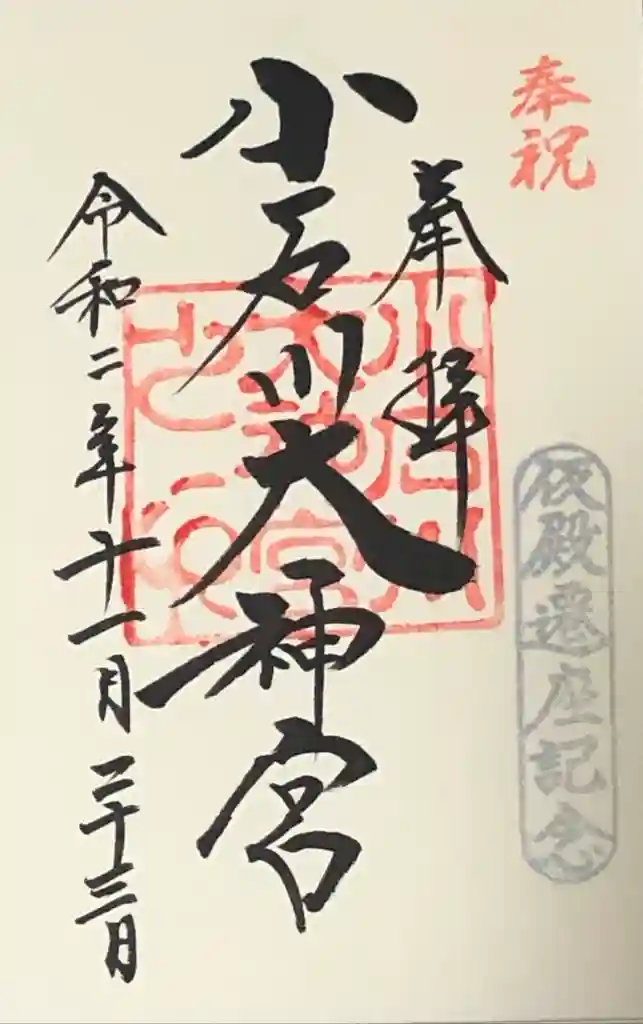 奉祝
仮殿遷座記念
奉拝
小石川大神宮
令和二年十一月二十三日